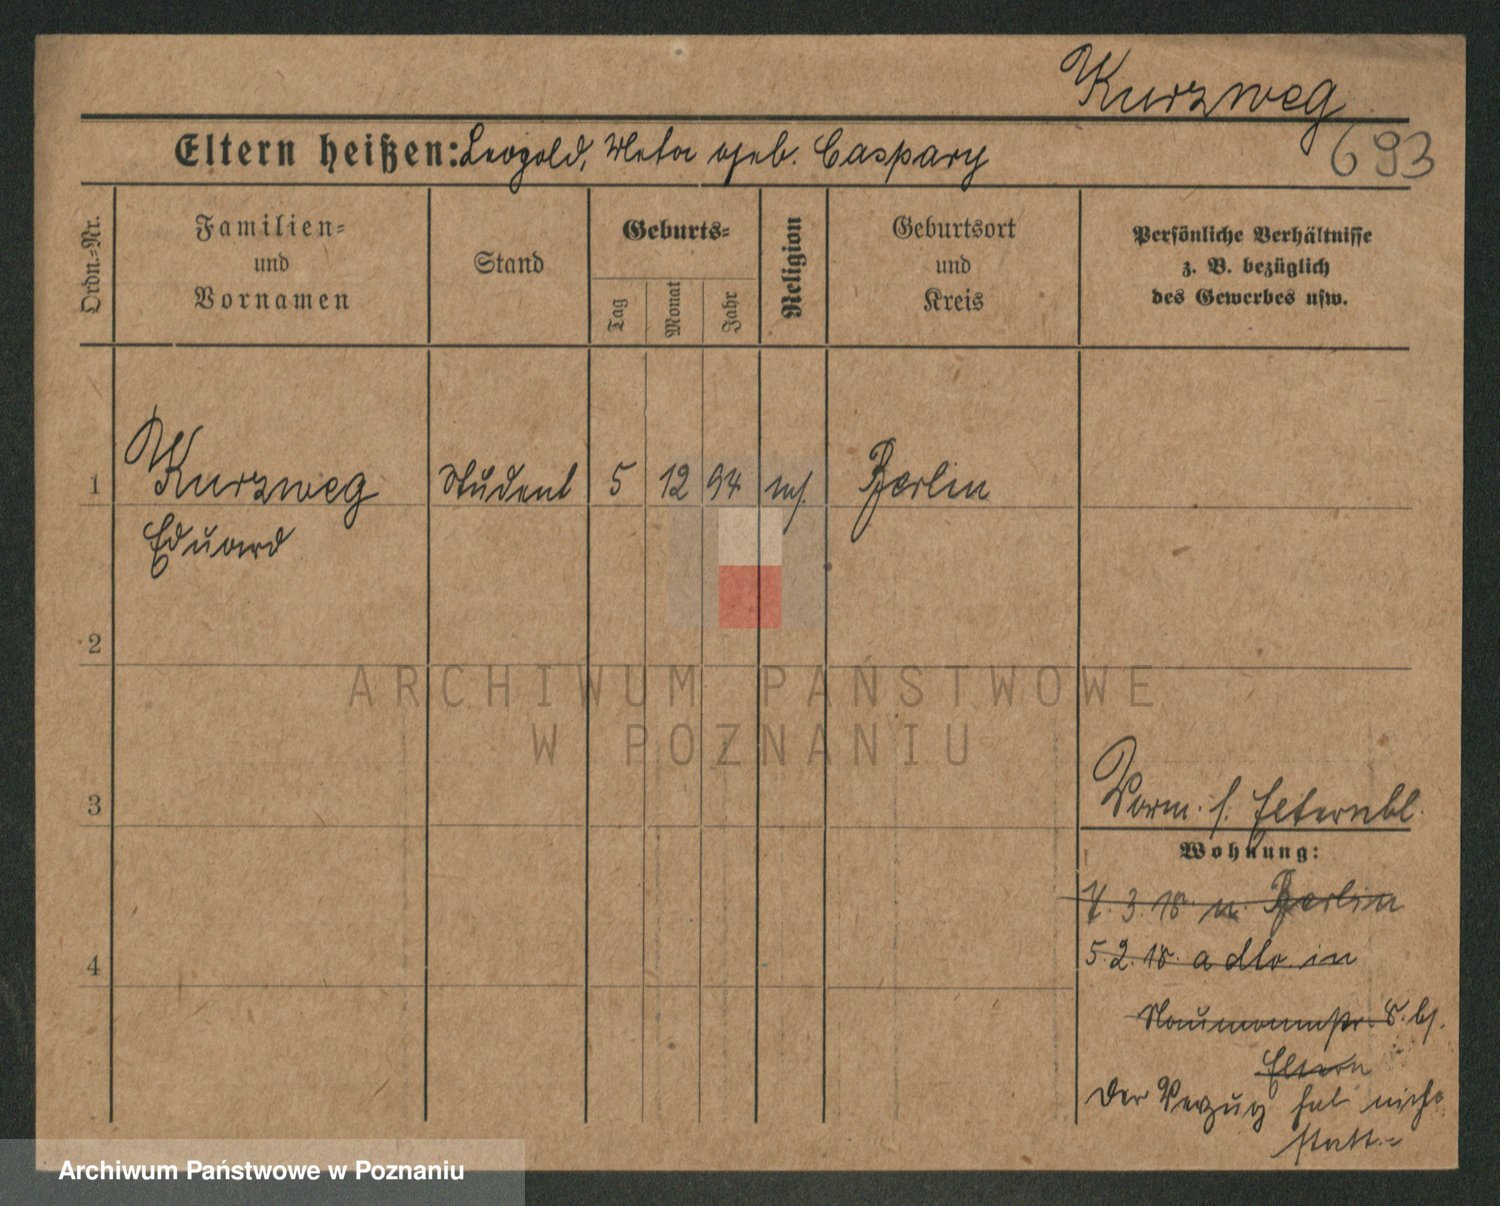 Kurzweg
693
Eltern heißen: Leopold, Meta geb. Caspary
Ordn.-Nr.
Familien-
und
Vornamen
Stand
Geburts-
Tag
Monat
Jahr
Religion
Geburtsort
und
Kreis
Persönliche Verhältnisse
z. B. bezüglich
des Gewerbes usw.
1 Kurzweg Student 5 12 94 Berlin
Eduard
2
ARCHIWUM PAŃSTWOWE
W POZNANIU
3
Vorm. s. Elternbl.
Wohnung:
7. 3. 18. n. Berlin
5 2. 18. a in
4
Naumannstr. 8. bs.
Eltern
Der Verzug hat nicht
statt.-
Archiwum Państwowe w Poznaniu